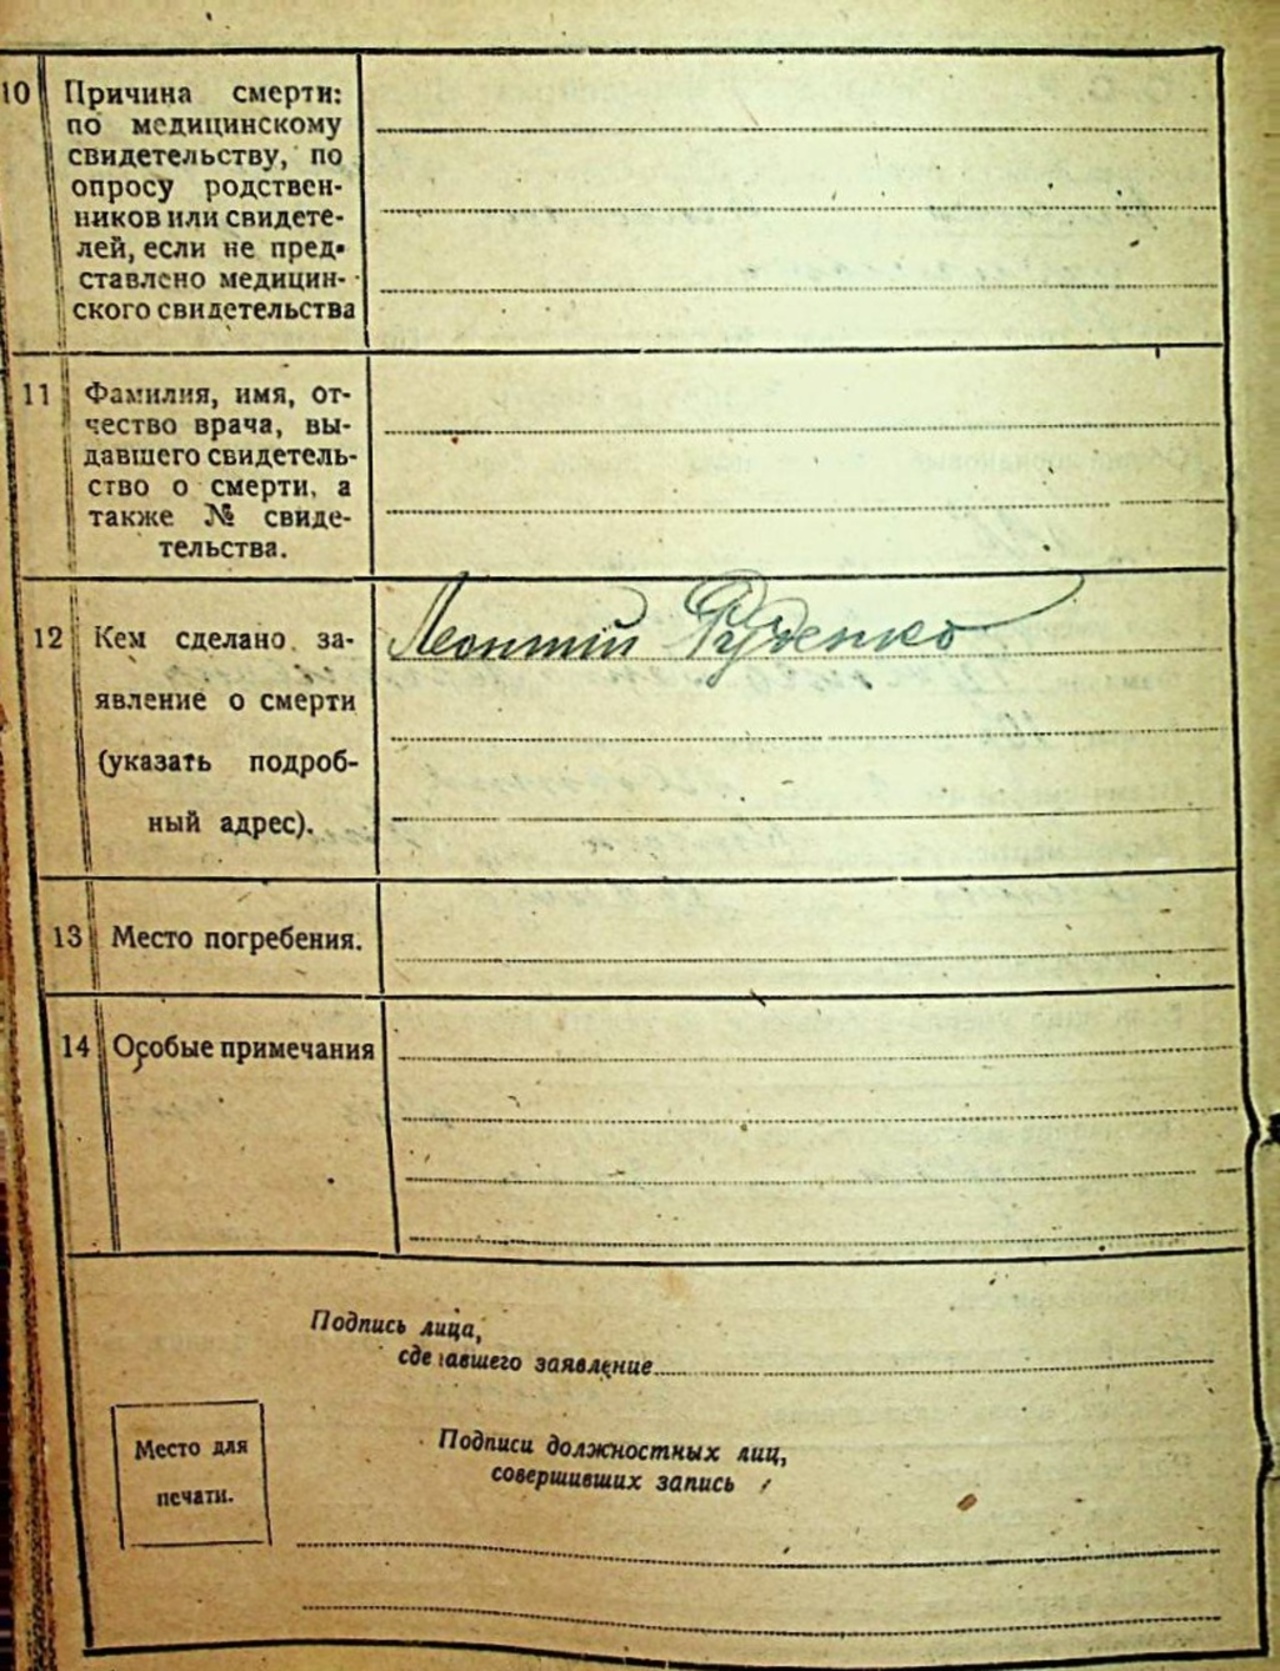 10 Причина смерти:
по медицинскому
свидетельству, по
опросу родствен-
ников или свидете-
лей, если не пред-
ставлено медицин-
ского свидетельства
11 Фамилия, имя, от-
чество врача, вы-
давшего свидетель-
ство о смерти, а
также № свиде-
тельства.
12 Кем сделано за- Леонтій Руденко
явление о смерти
(указать подроб-
ный адрес).
13 Место погребения.
14 Особые примечания
Подпись лица,
сделавшего заявление
Подписи должностных лиц,
совершивших запись
Место для
печати.